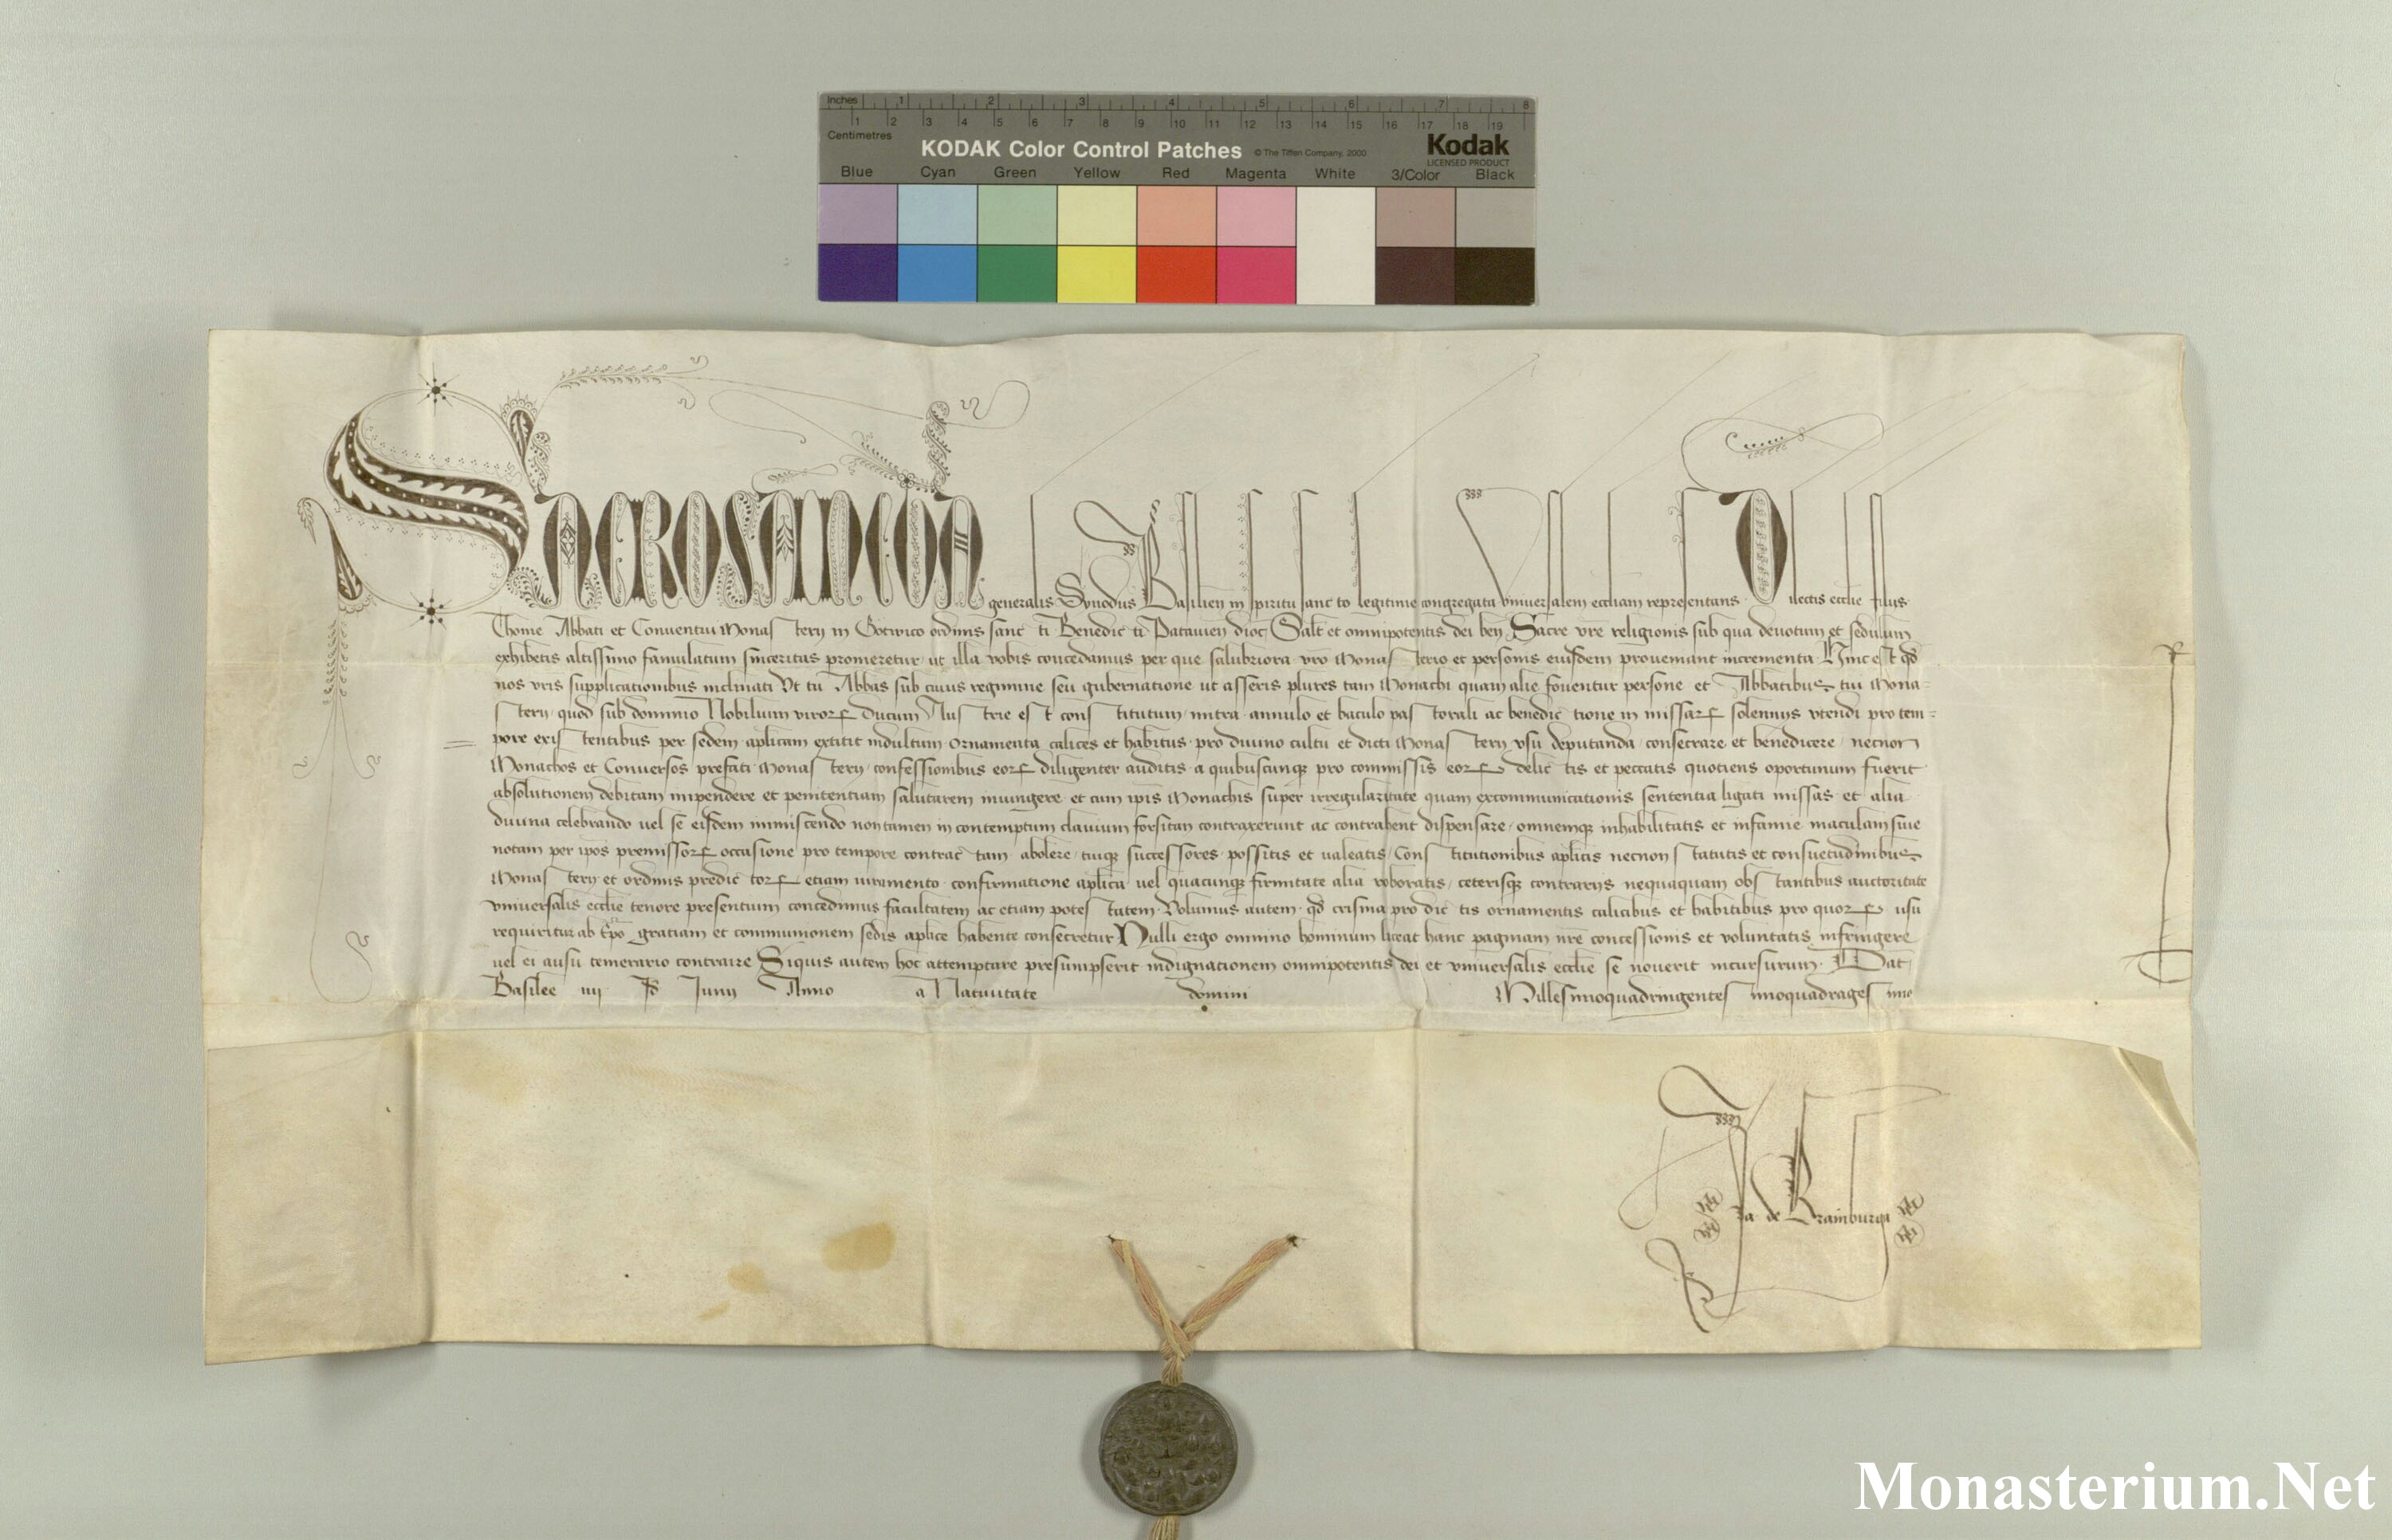 Inches 1 2 3 4 5 6 7 8
1 2 3 4 5 6 7 8 9 10 11 12 13 14 15 16 17 18 19
Centimetres
KODAK Color Control Patches © The Tiffen Company, 2000 Kodak
LICENSED PRODUCT
Blue Cyan Green Yellow Red Magenta White 3/Color Black
SACROSANCTA generalis Synodus Basilien in spiritu sancto legitime congregata universalem eccliam representans Dilectis ecclie filijs
Thome Abbati et Conventui Monasterij in Gotwico ordinis sancti Benedicti Patavien dioc Salt et omnipotentis dei ben Sacre vre religionis sub qua devotum et sedulum
exhibetis altissimo famulatum sinceritas promeretur ut illa vobis concedamus per que salubriora vro Monasterio et personis eiusdem proveniant incrementa Hinc est qd
nos vris supplicationibus inclinati Ut tu Abbas sub cuius regimine seu gubernatione ut asseris plures tam Monachi quam alie foventur persone et Abbatibus tui Mona-
sterij quod sub dominio Nobilium viror Ducum Austrie est constitutum mitra annulo et baculo pastorali ac benedictione in missar solennijs utendi pro tem-
pore existentibus per sedem aplicam extitit indultum ornamenta calices et habitus pro divino cultu et dicti Monasterij usu deputanda consecrare et benedicere necnon
Monachos et Conversos prefati Monasterij confessionibus eor diligenter auditis a quibuscunq pro commissis eor delictis et peccatis quotiens oportunum fuerit
absolutionem debitam impendere et penitentiam salutarem iniungere et cum ipis Monachis super irregularitate quam excommunicationis sententia ligati missas et alia
divina celebrando vel se eisdem immiscendo non tamen in contemptum clavium forsitan contraxerunt ac contrahent dispensare omnemq inhabilitatis et infamie maculam sive
notam per ipos premissor occasione pro tempore contractam abolere tuiq successores possitis et valeatis Constitutionibus aplicis necnon statutis et consuetudinibus
Monasterij et ordinis predictor etiam iuramento confirmatione aplica vel quacunq firmitate alia roboratis ceterisq contrarijs nequaquam obstantibus auctoritate
universalis ecclie tenore presentium concedimus facultatem ac etiam potestatem Volumus autem qd crisma pro dictis ornamentis calicibus et habitibus pro quor usu
requiritur ab Epo gratiam et communionem sedis aplice habente consecretur Nulli ergo omnino hominum liceat hanc paginam nre concessionis et voluntatis infringere
vel ei ausu temerario contraire Siquis autem hoc attemptare presumpserit indignationem omnipotentis dei et universalis ecclie se noverit incursurum Dat
Basilee iiij Id Junij Anno a Nativitate domini Millesimoquadringentesimoquadragesimo
Ja de Bramburga
Monasterium.Net